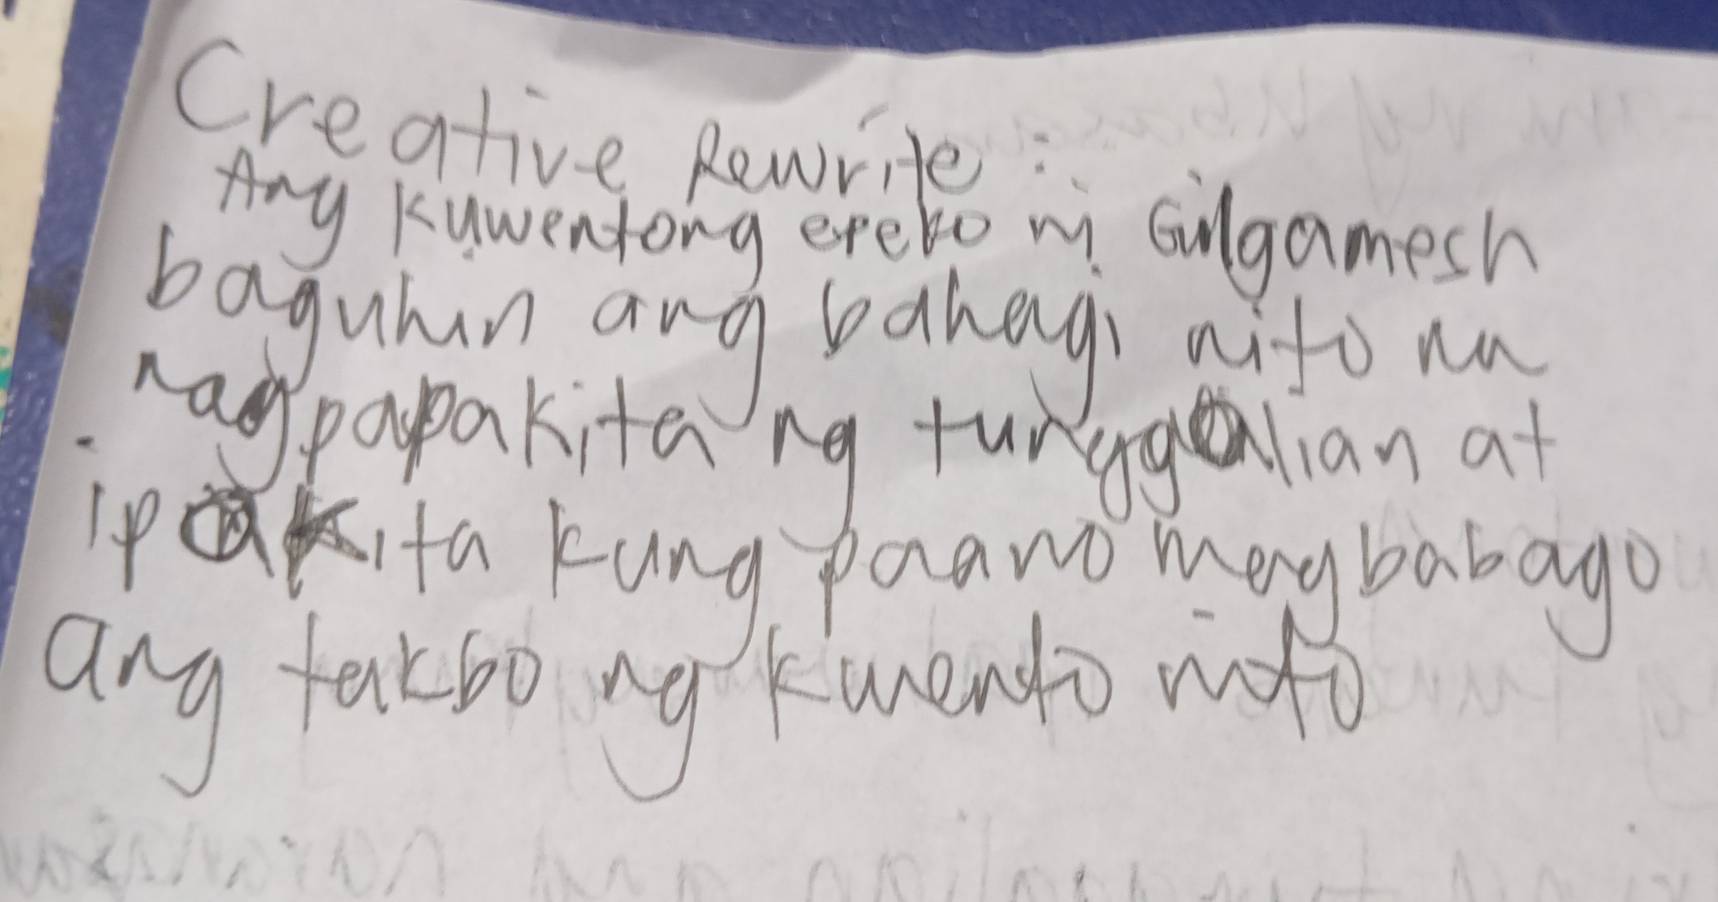 Creative Rewrite :
Ang Kuwentong epeko ni Gilgamesh
baguhin ang bahagi nito na
nagpapakita ng tunggalian at
ipakita kung paano magbabago
ang takbo ng kwento nito